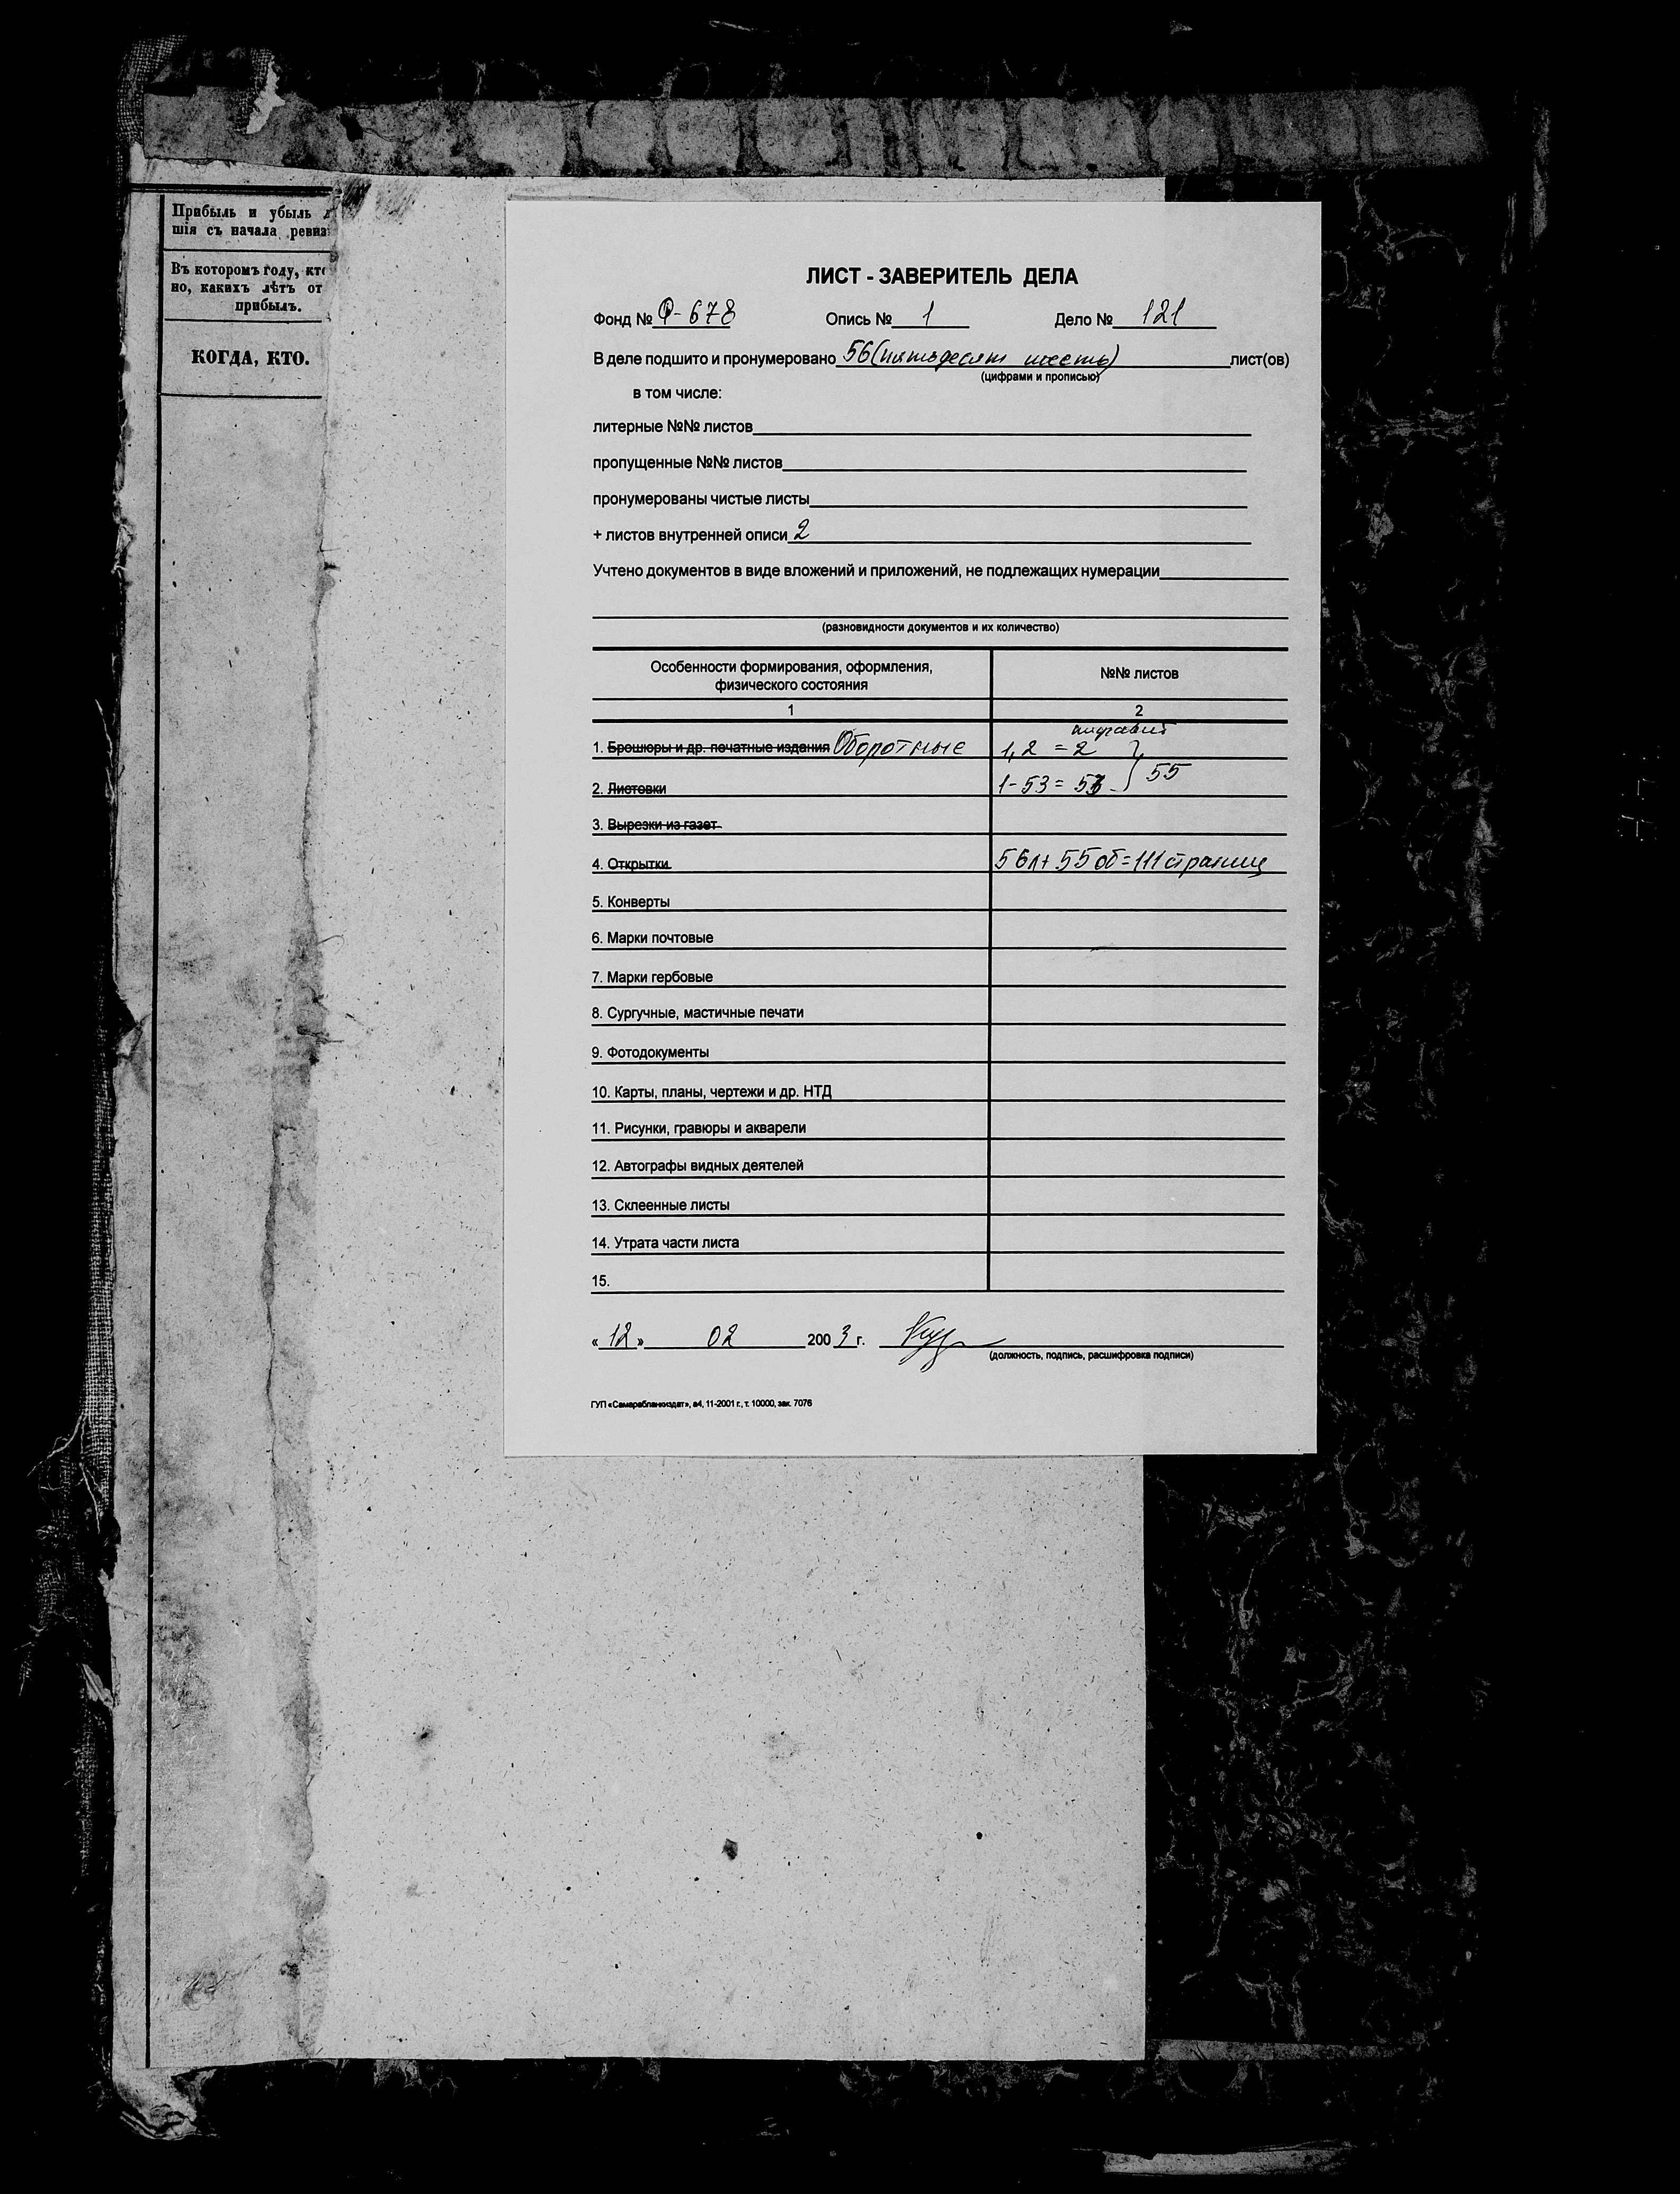 Прибыль и убыль
шія съ начала ревиз
Въ которомъ году, кто
но, какихъ лѣтъ от
прибылъ.
КОГДА, КТО.
ЛИСТ - ЗАВЕРИТЕЛЬ ДЕЛА
Фонд № Ф-678 Опись № 1 Дело № 121
В деле подшито и пронумеровано 56 (пятьдесят шесть) лист(ов)
(цифрами и прописью)
в том числе:
литерные №№ листов
пропущенные №№ листов
пронумерованы чистые листы
+ листов внутренней описи 2
Учтено документов в виде вложений и приложений, не подлежащих нумерации
(разновидности документов и их количество)
Особенности формирования, оформления, физического состояния №№ листов
1 2
1. Брошюры и др. печатные издания Оборотные 1,2 = 2
2. Листовки 1-53 = 53 } 55
3. Вырезки из газет
4. Открытки 56л + 55 об = 111 страниц
5. Конверты
6. Марки почтовые
7. Марки гербовые
8. Сургучные, мастичные печати
9. Фотодокументы
10. Карты, планы, чертежи и др. НТД
11. Рисунки, гравюры и акварели
12. Автографы видных деятелей
13. Склеенные листы
14. Утрата части листа
15.
« 12 » 02 2003 г.
(должность, подпись, расшифровка подписи)
ГУП «Самарабланкиздат», а4, 11-2001 г., т. 10000, зак. 7076